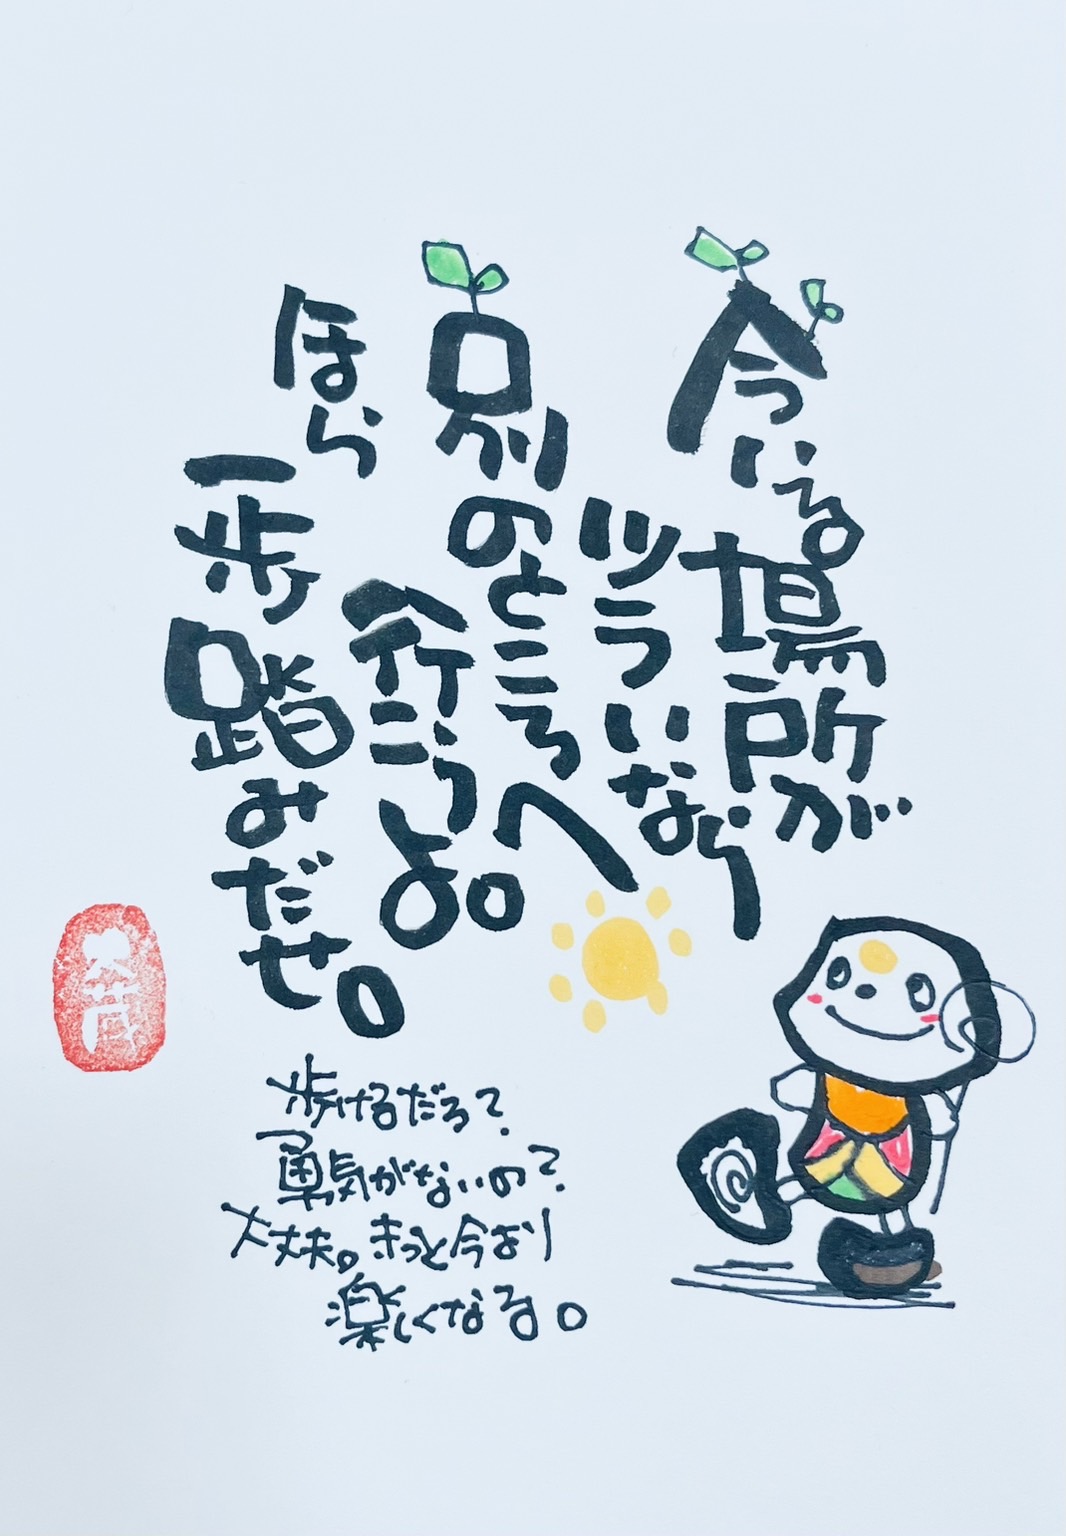 今いる場所が
ツラいなら
別のところへ
行こうよ。
ほら
一歩踏みだせ。
歩けるだろ?
勇気がないの?
大丈夫。きっと今より
楽しくなる。